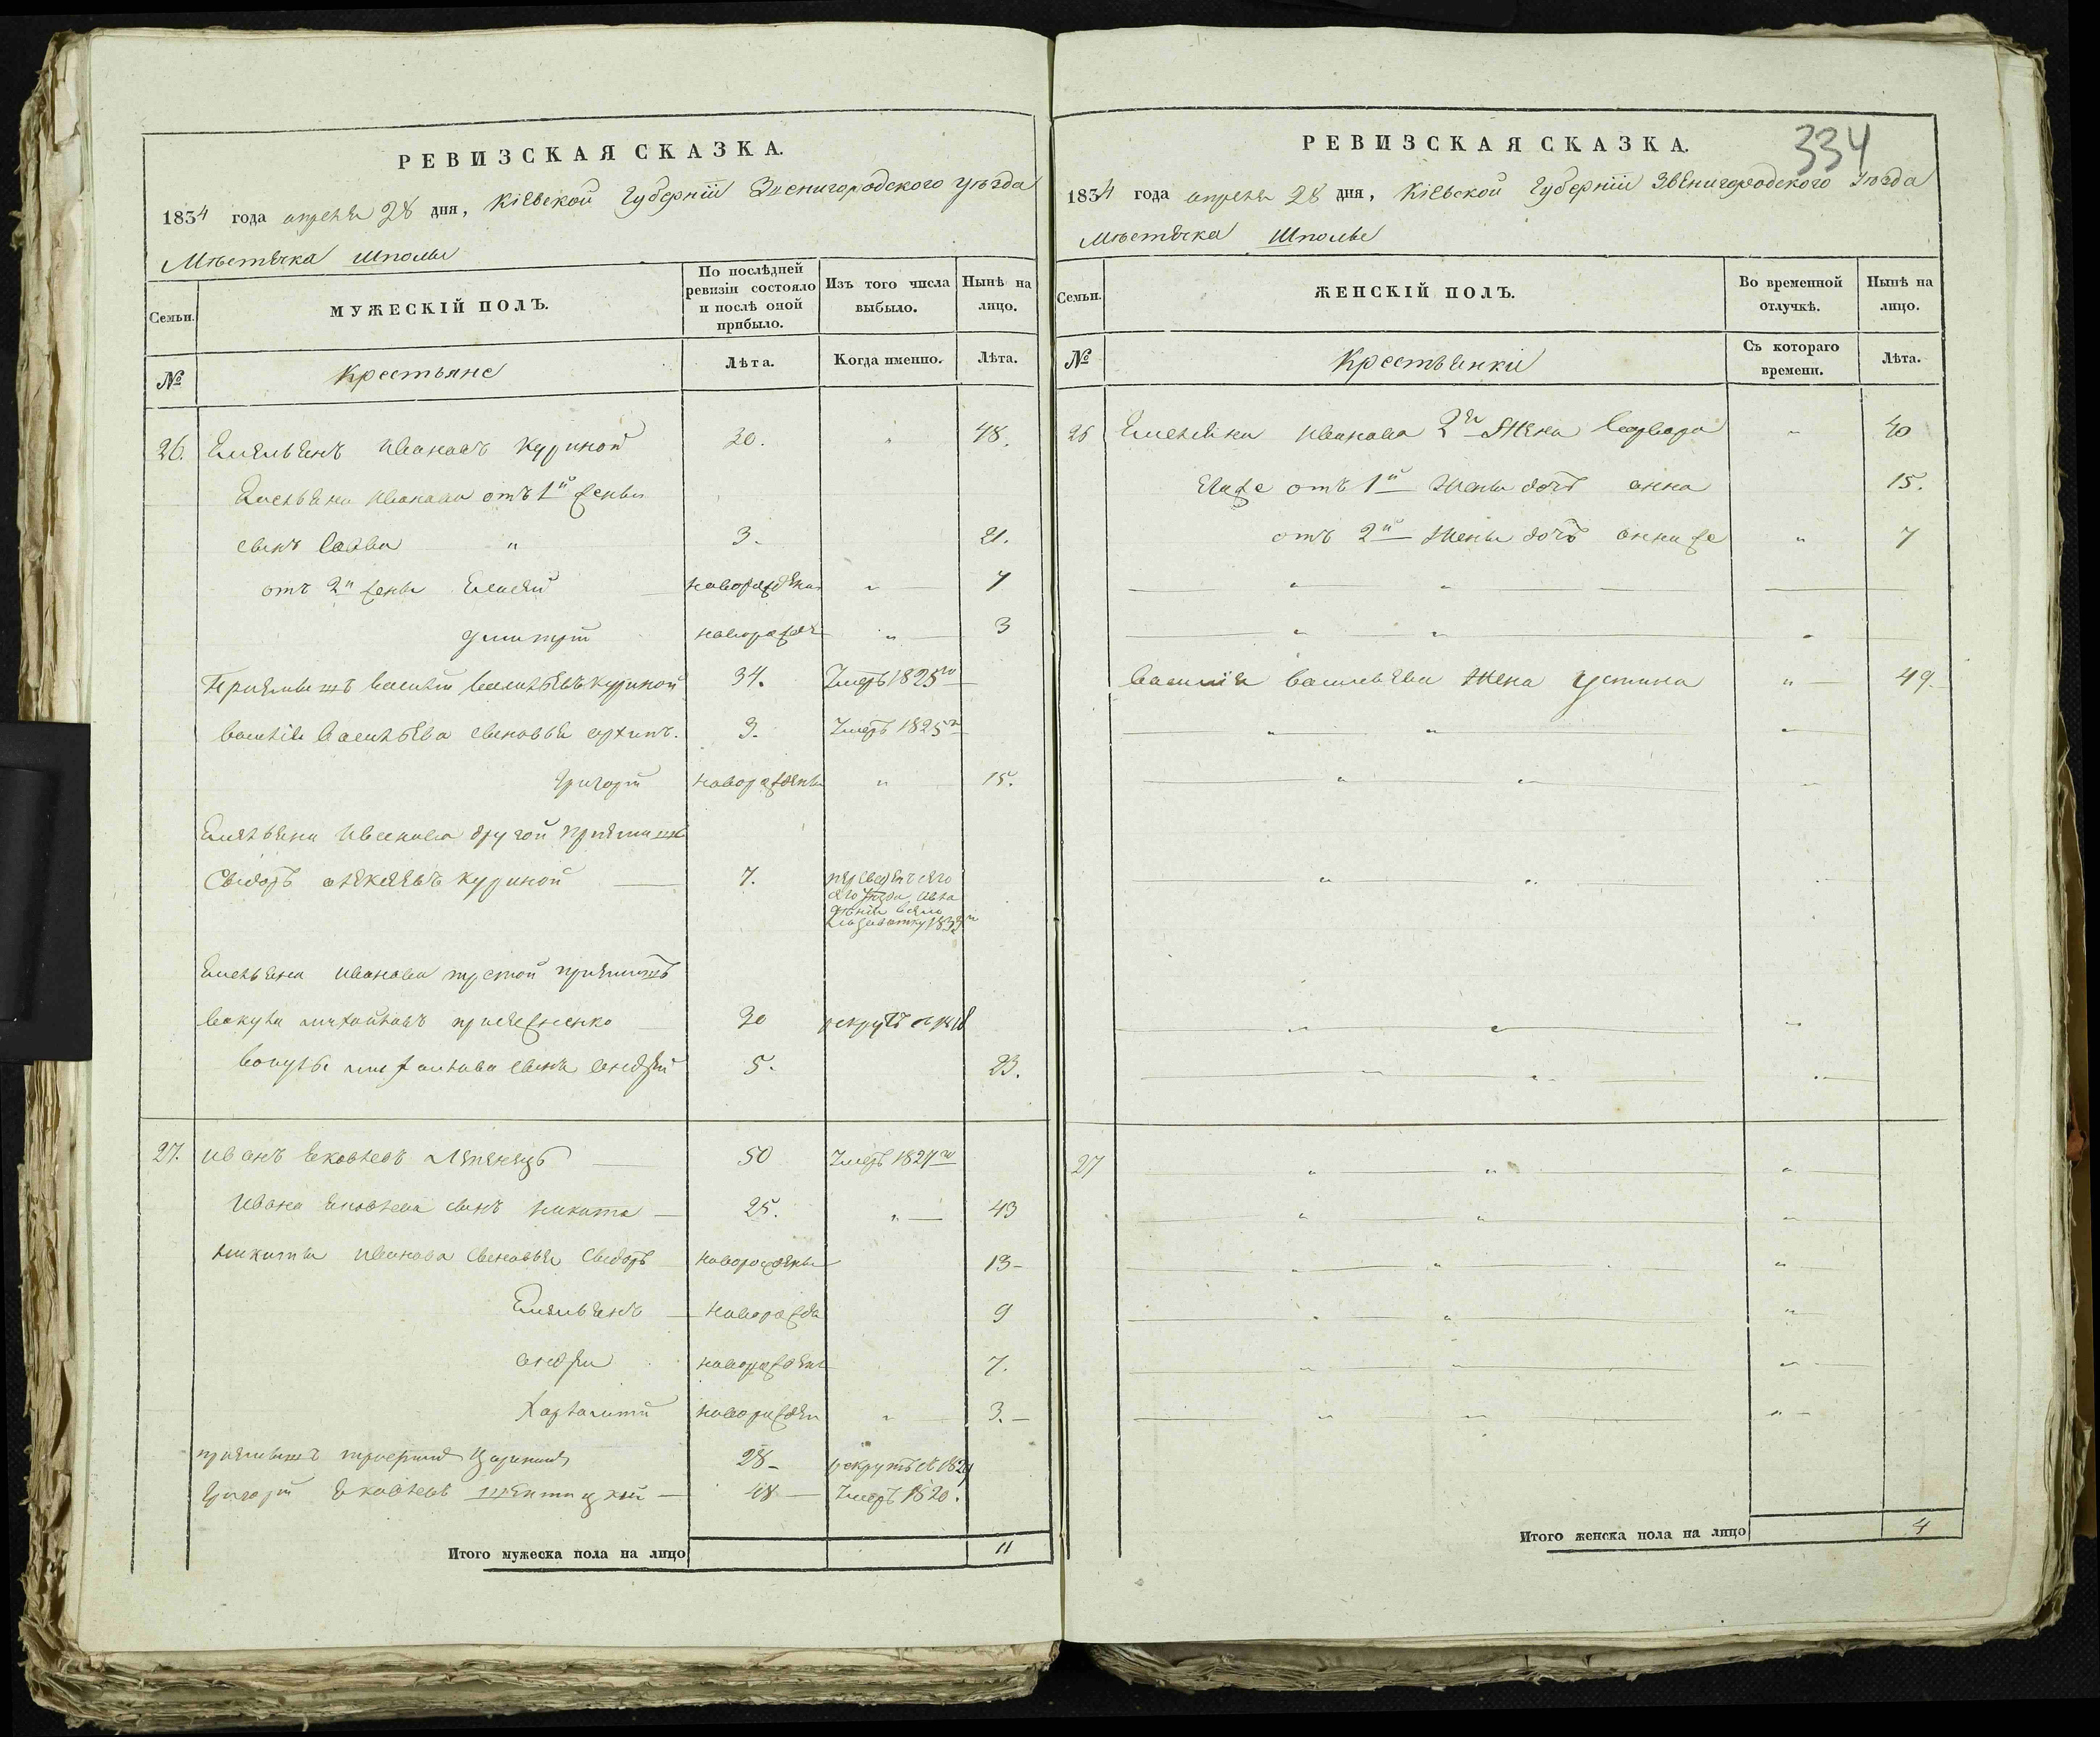 РЕВИЗСКАЯ СКАЗКА.
1834 года апреля 28 дня, Кіевской Губерніи Звенигородского уѣзда
Мѣстечка Шполы
Семьи.
МУЖЕСКІЙ ПОЛЪ.
По послѣдней ревизіи состояло и послѣ оной прибыло.
Изъ того числа выбыло.
Нынѣ на лицо.
№
Крестьяне
Лѣта.
Когда именно.
Лѣта.
26. Емельянъ Ивановъ Куриной 30. " 48.
Емельяна Иванова отъ 1й жены
сынъ Савва " 3. 21.
отъ 2й жены новорожден " 7
Димитрій новорожде " 3
Приемышъ Василій Васильевъ Куриной 34. Умеръ 1825го
Василія Васильева сыновья Архипъ. 3. Умеръ 1825го
Григорій новорожденны " 15.
Емельяна Иванова другой приемышъ
Свидоръ Алексеевъ Куриной 7.
1832го
Емельяна Иванова третой приемышъ
Вакула Михайловъ 30 рекрутъ
Вакулы Михайлова сынъ Андрей 5. 23.
27. Иванъ Яковлевъ Лепенецъ 50 Умеръ 1827го
Ивана Яковлева сынъ Никита 25. " 43
Никиты Иванова сыновья Свидоръ новорожденны 13
Емельянъ новорожде 9
Андрей новорожден 7.
Харлампій новорожден " 3.
приемышъ 28 рекрутъ
Григорій Яковлевъ 48 Умеръ 1820.
Итого мужеска пола на лицо 11
РЕВИЗСКАЯ СКАЗКА.
334
1834 года апреля 28 дня, Кіевской Губерніи Звенигородского уѣзда
Мѣстечка Шполы
Семьи.
ЖЕНСКІЙ ПОЛЪ.
Во временной отлучкѣ.
Нынѣ на лицо.
№
Крестьянки
Съ котораго времени.
Лѣта.
26 Емельяна Иванова 2я Жена Варвара " 40
Егоже отъ 1й Жены дочь Анна 15.
отъ 2й Жены дочь " 7
Василія Васильева Жена Устина " 49.
27
Итого женска пола на лицо 4